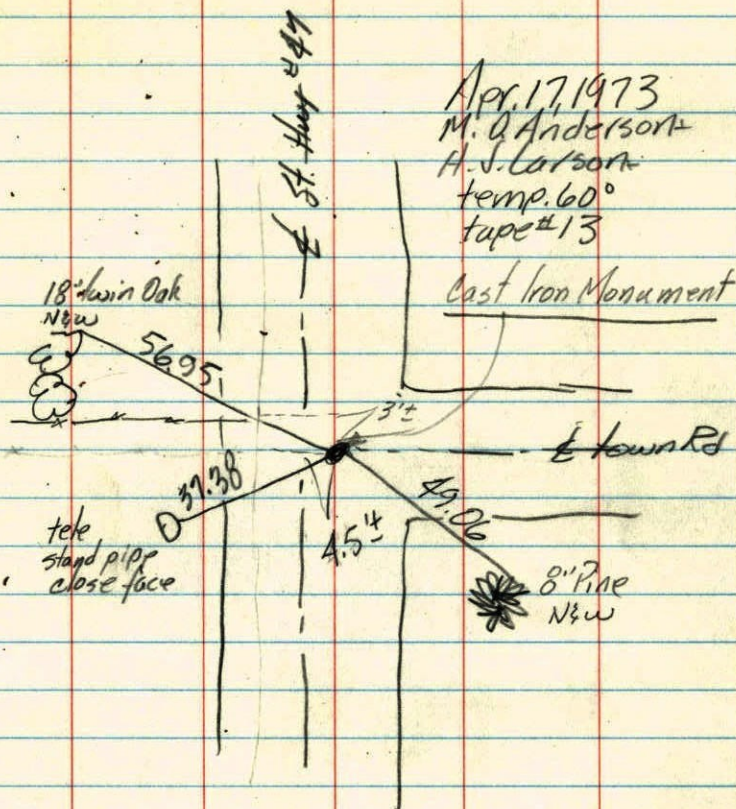 ℄ St. Hwy #47
Apr. 17, 1973
M. O. Anderson
H. J. Carson
temp. 60°
tape #13
Cast Iron Monument
18" twin Oak
N&W
56.95
3'±
℄ town Rd
37.38
49.06
4.5'±
tele
stand pipe
close face
8" Pine
N&W